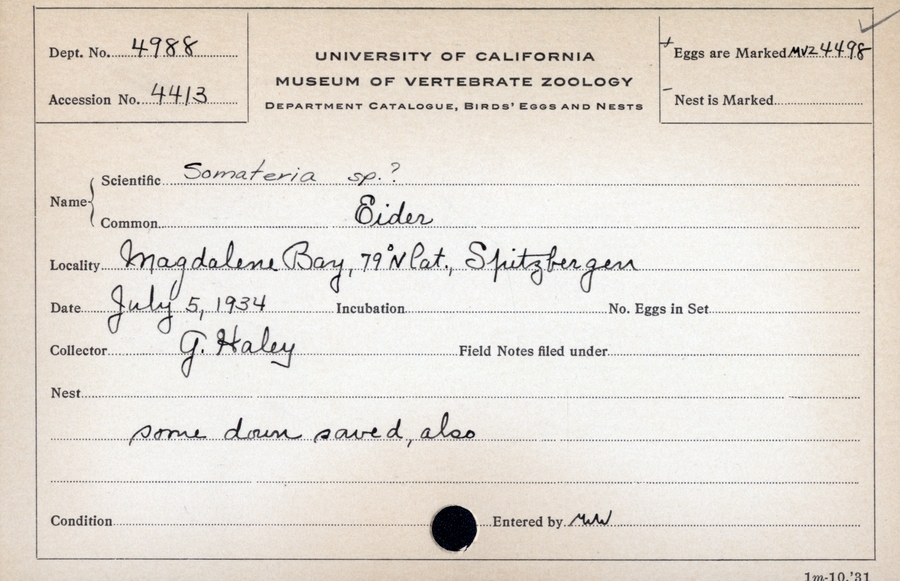 Dept. No. 4988
Accession No. 4413
UNIVERSITY OF CALIFORNIA
MUSEUM OF VERTEBRATE ZOOLOGY
DEPARTMENT CATALOGUE, BIRDS' EGGS AND NESTS
+ Eggs are Marked MVZ 4498
- Nest is Marked
Name
Scientific Somateria sp.?
Common Eider
Locality Magdalene Bay, 79°N Lat., Spitzbergen
Date July 5, 1934 Incubation No. Eggs in Set
Collector G. Haley Field Notes filed under
Nest
some down saved, also
Condition Entered by
1m-10,'31